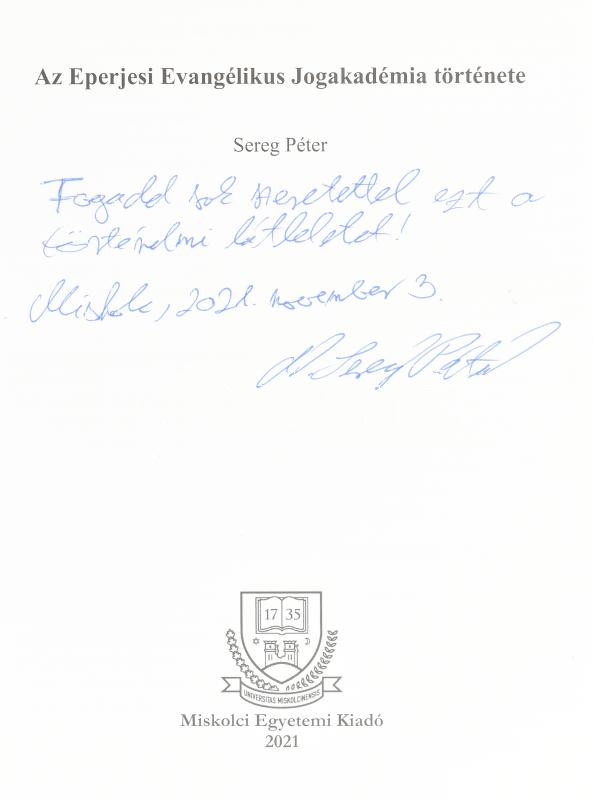 Az Eperjesi Evangélikus Jogakadémia története
Sereg Péter
Fogadd sok szeretettel ezt a
történelmi látleletet!
Miskolc, 2021. november 3.
Dr. Sereg Péter
17 35
UNIVERSITAS MISKOLCINENSIS
Miskolci Egyetemi Kiadó
2021